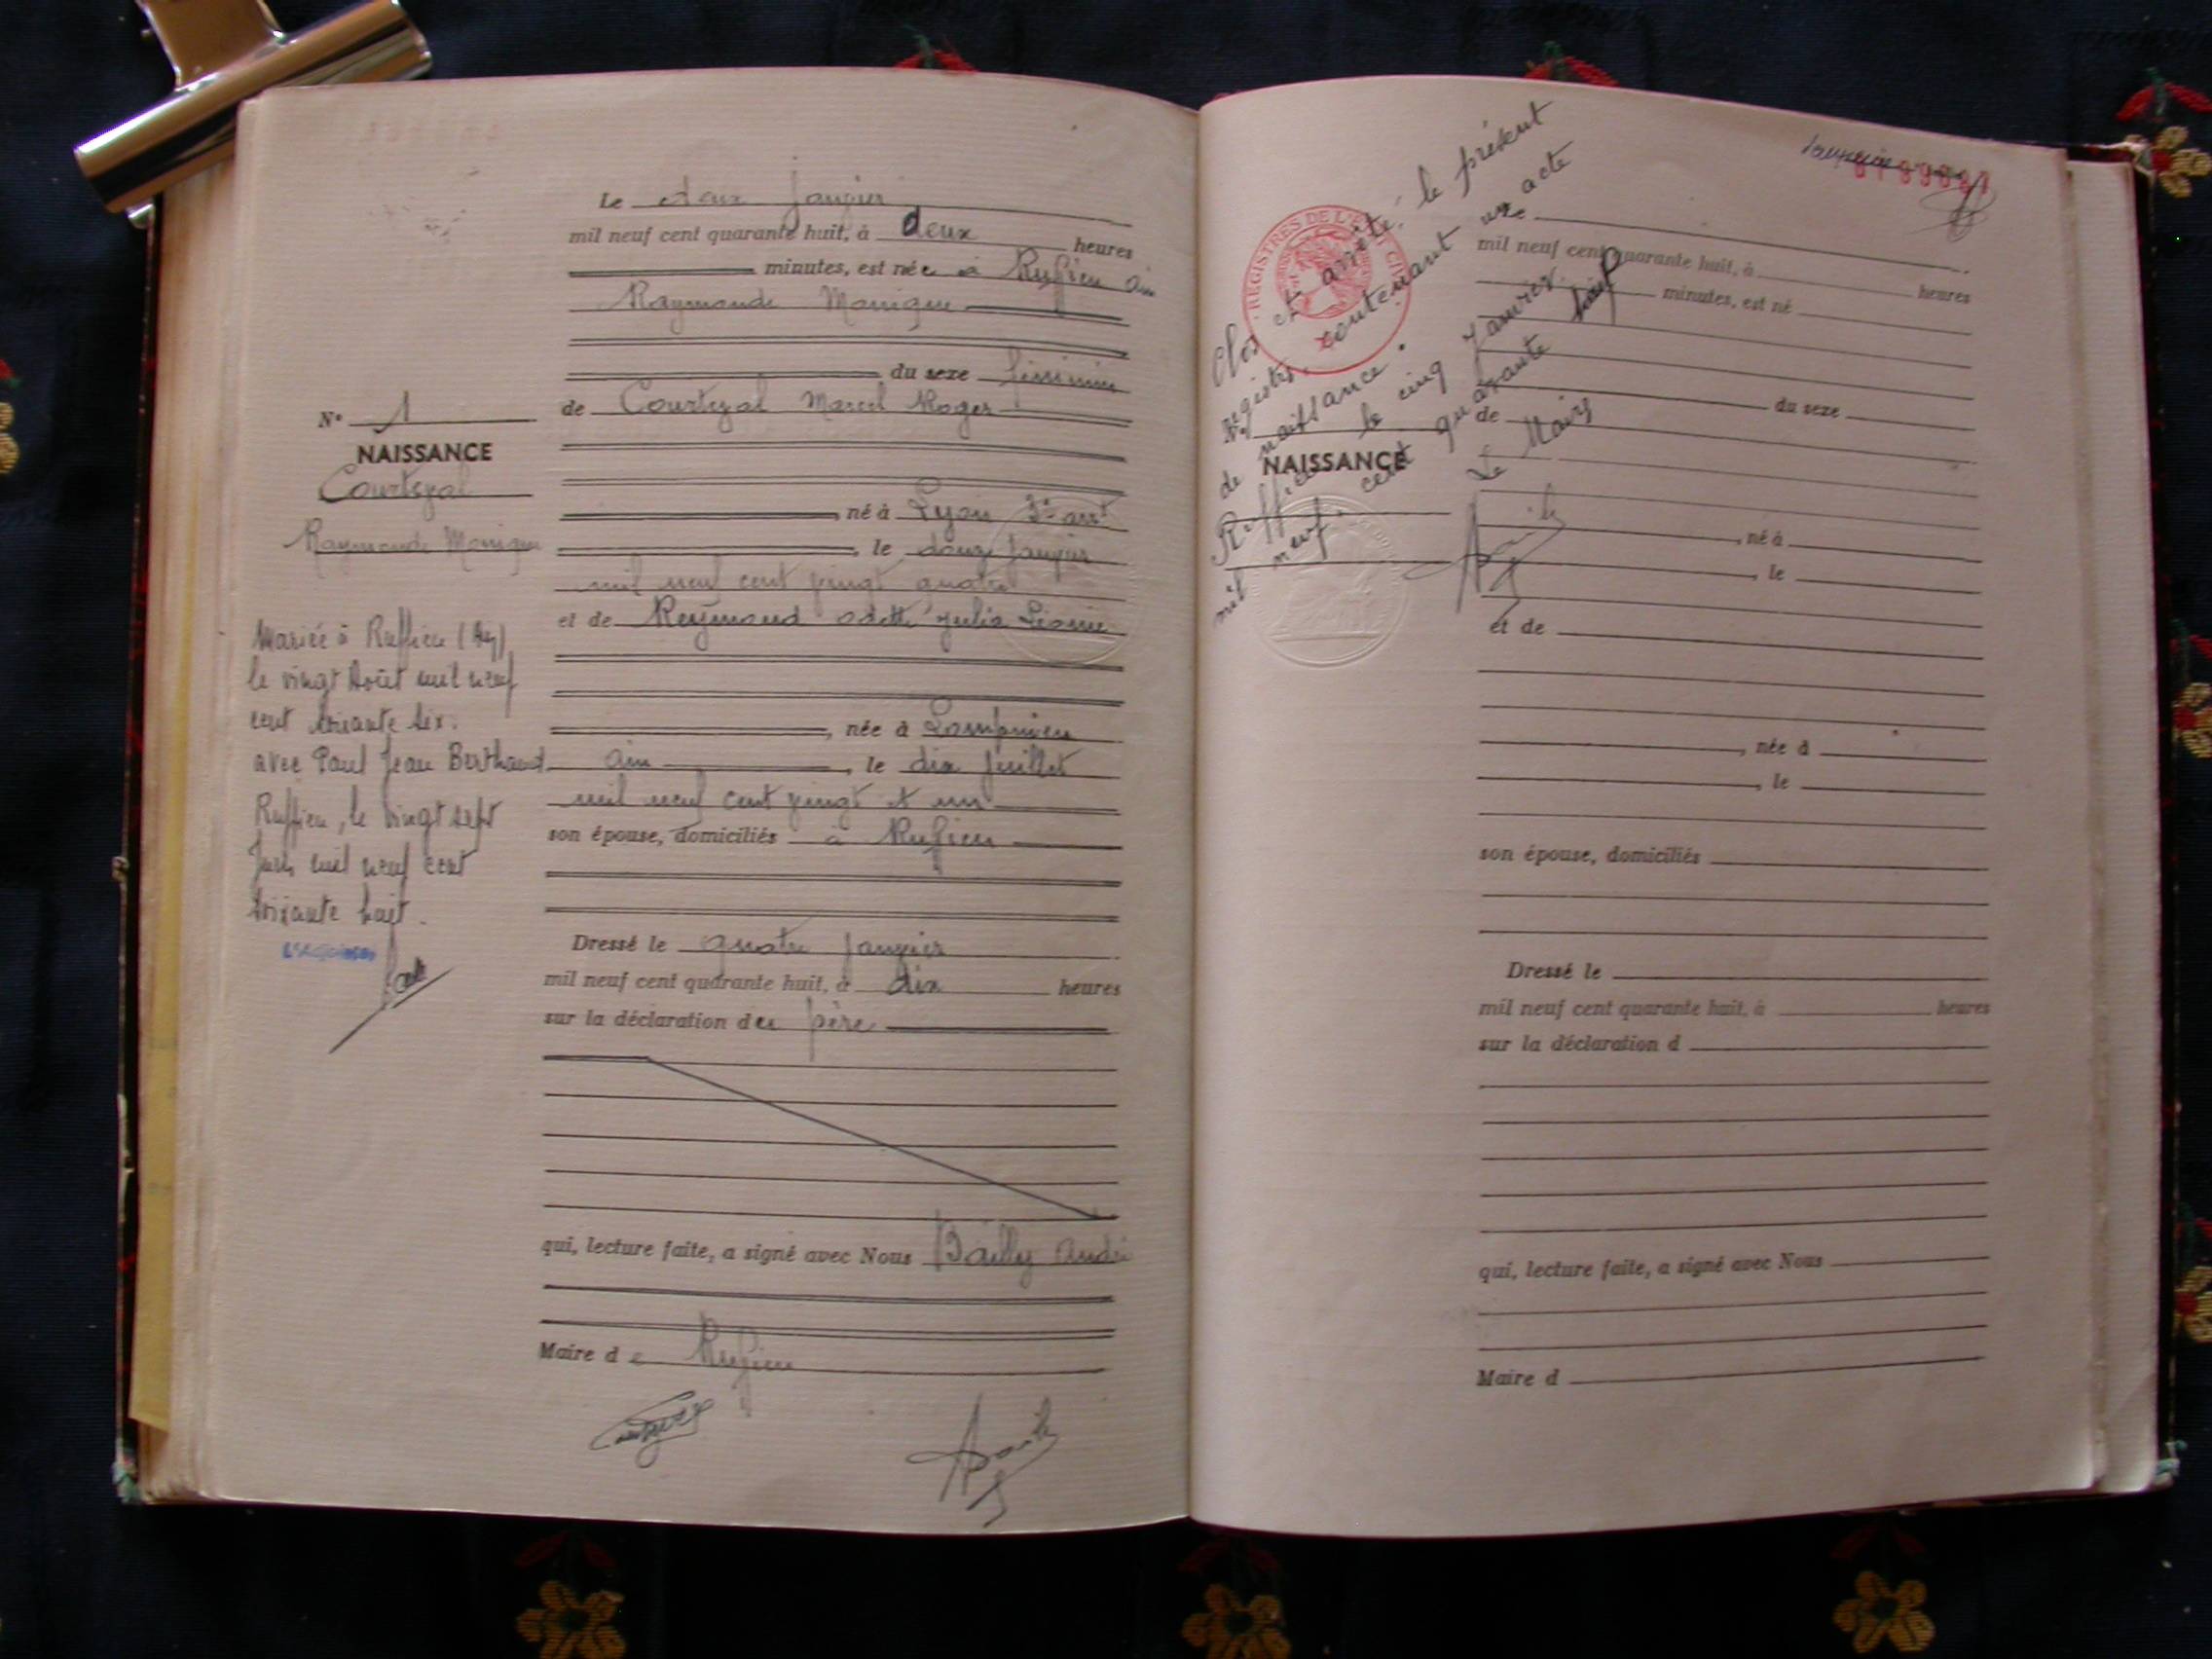 Le deux Janvier
mil neuf cent quarante huit, à deux heures
minutes, est née à Rufieu Ain
Raymonde Monique
du sexe féminin
de Courtezal Marcel Roger
né à Lyon 3e arrt
, le douze Janvier
mil neuf cent vingt quatre
et de Reymond Odette Julia Léonie
, née à Lompnieu
Ain , le dix Juillet
mil neuf cent vingt et un
son épouse, domiciliés à Rufieu
Dressé le quatre Janvier
mil neuf cent quarante huit, à dix heures
sur la déclaration du père
qui, lecture faite, a signé avec Nous Bailly André
Maire de Rufieu
N° 1
NAISSANCE
Courtezal
Raymonde Monique
Mariée à Ruffieu (Ain)
le vingt Août mil neuf
cent soixante six.
avec Paul Jean Berthaud
Ruffieu, le vingt sept
Juin mil neuf cent
soixante huit.
Clos et arrêté, le présent
registre contenant un acte
de naissance.
Ruffieu le cinq Janvier
mil neuf cent quarante huit
Le Maire
REGISTRES DE L'ÉTAT CIVIL
Le
mil neuf cent quarante huit, à heures
minutes, est né
du sexe
de
N°
NAISSANCE
, né à
, le
et de
, née à
, le
son épouse, domiciliés
Dressé le
mil neuf cent quarante huit, à heures
sur la déclaration d
qui, lecture faite, a signé avec Nous
Maire d